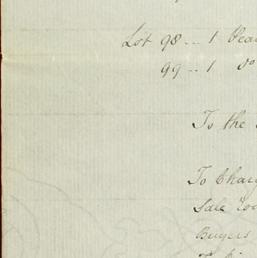 Lot 98 .. 1
99 .. 1 do
To the
To Charg
Sale Roo
Buyers